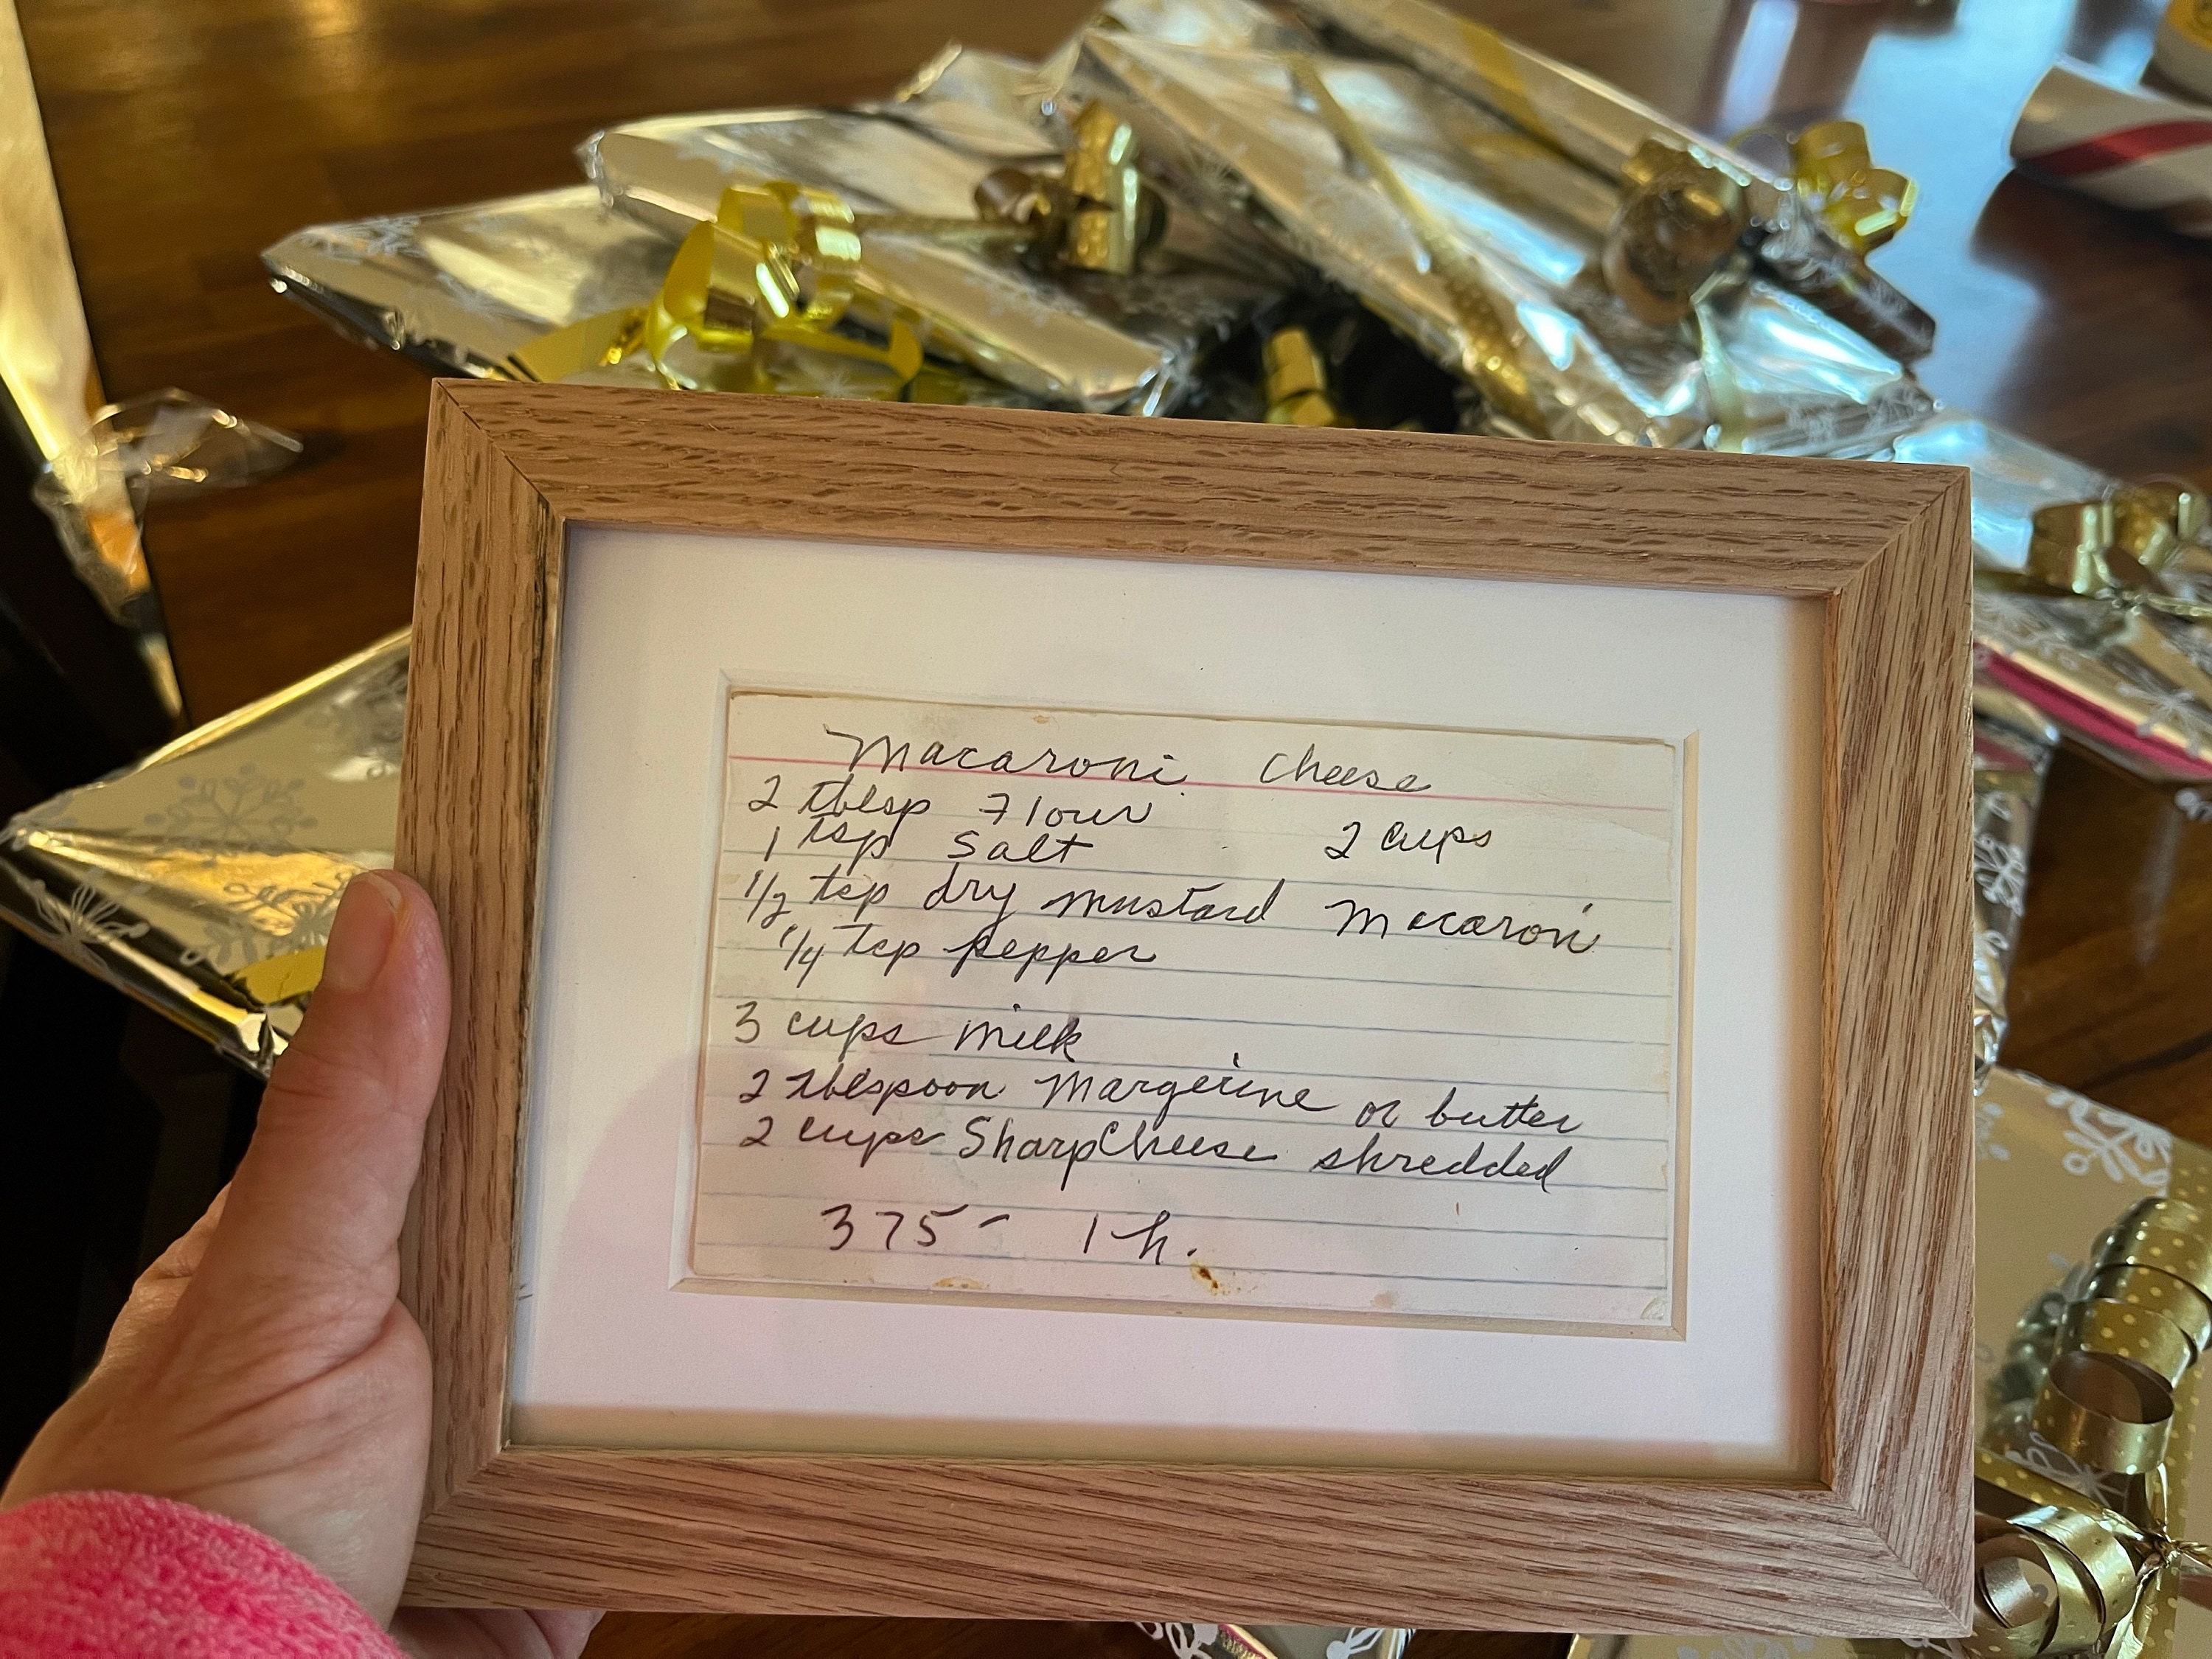 Macaroni Cheese
2 tblsp Flour
1 tsp Salt 2 cups
1/2 tsp dry mustard Macaroni
1/4 tsp pepper
3 cups milk
2 tblespoon Margerine or butter
2 cups Sharp Cheese shredded
375- 1 h.